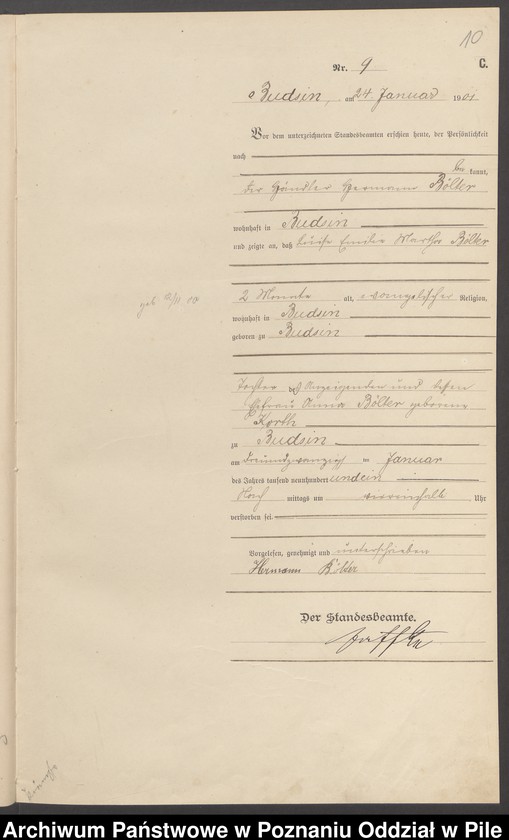 10
Nr. 9
C.
Budsin, am 24. Januar 1901
Vor dem unterzeichneten Standesbeamten erschien heute, der Persönlichkeit
nach
be kannt,
der Händler Hermann Bölter
wohnhaft in Budsin
und zeigte an, daß Luise Emilie Martha Bölter
2 Monate alt, evangelischer Religion,
wohnhaft in Budsin
geboren zu Budsin
geb
Tochter des Anzeigenden und dessen
Ehefrau Anna Bölter geborene
Korth
zu Budsin
am dreiundzwanzigsten Januar
des Jahres tausend neunhundert undein
Nach mittags um viereinhalb Uhr
verstorben sei.
Vorgelesen, genehmigt und unterschrieben
Hermann Bölter
Der Standesbeamte.
Archiwum Państwowe w Poznaniu Oddział w Pile